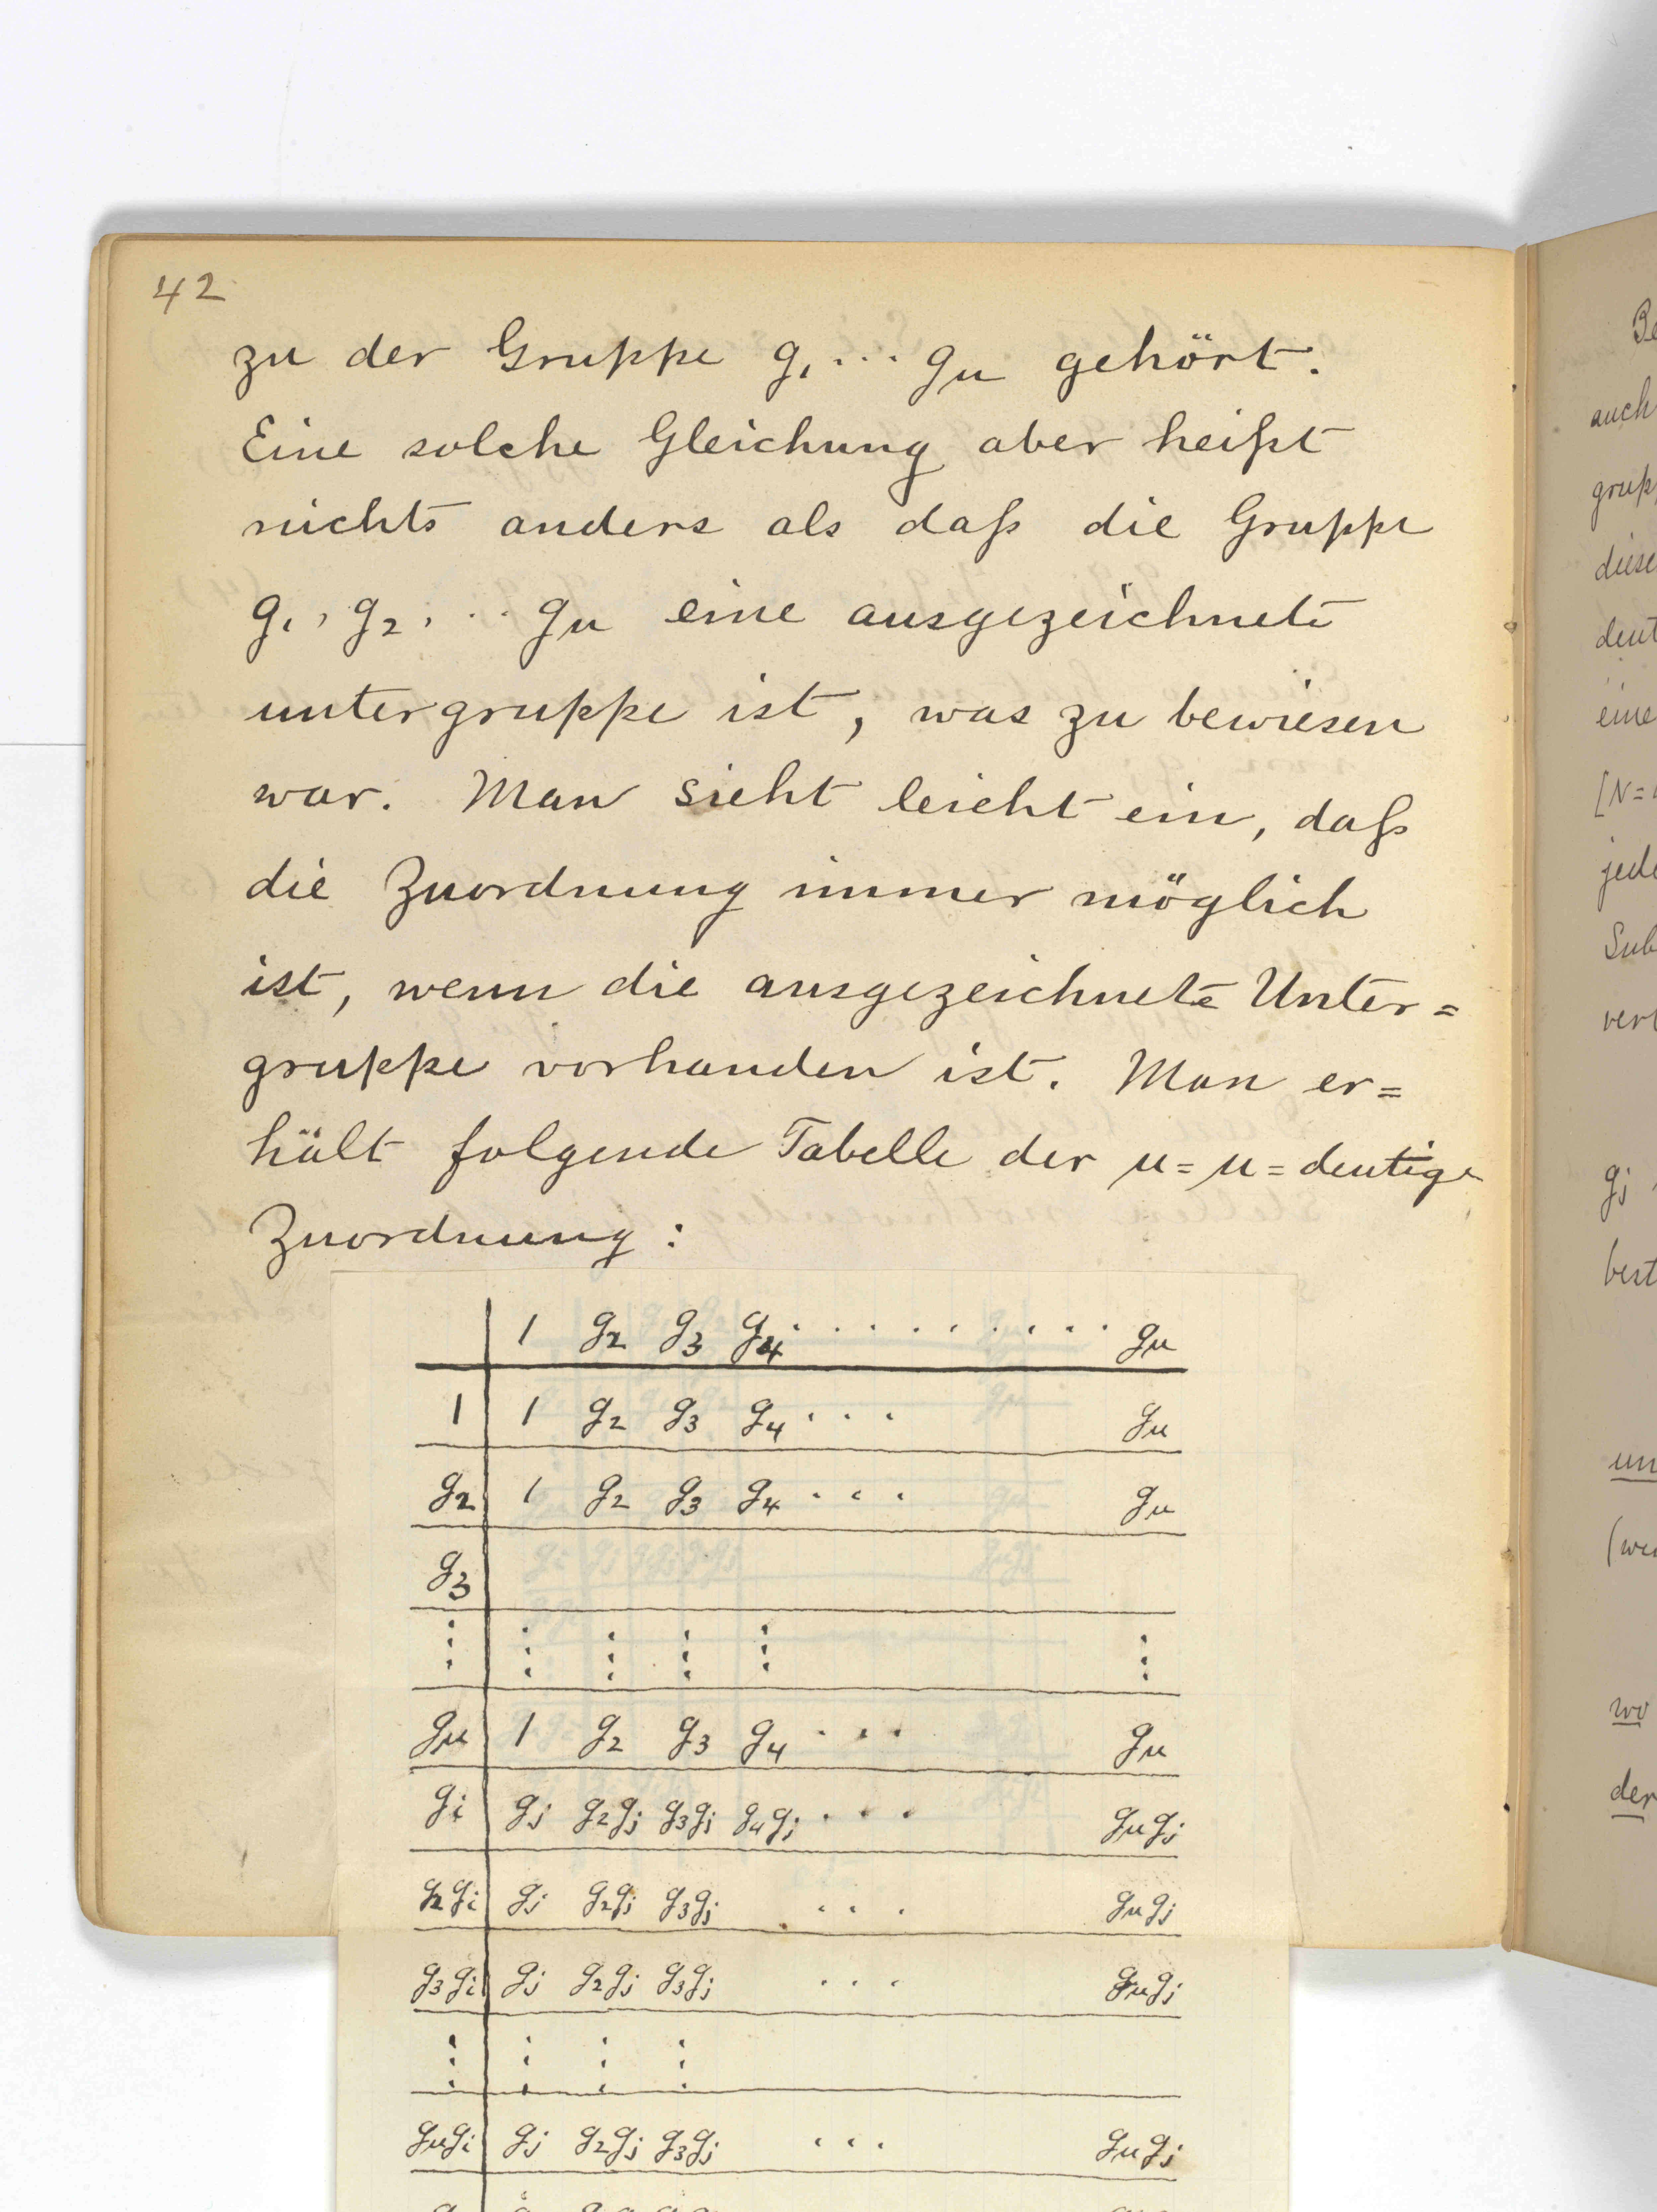 42
zu der Gruppe g₁ ... gμ gehört.
Eine solche Gleichung aber heißt
nichts anders als daß die Gruppe
g₁, g₂, ... gμ eine ausgezeichnete
untergruppe ist, was zu bewiesen
war. Man sieht leicht ein, daß
die Zuordnung immer möglich
ist, wenn die ausgezeichnete Unter=
gruppe vorhanden ist. Man er=
hält folgende Tabelle der μ=μ=deutige
Zuordnung:
1 g₂ g₃ g₄ . . . . . . . . . gμ
1 1 g₂ g₃ g₄ . . . gμ
g₂ 1 g₂ g₃ g₄ . . . gμ
g₃
⋮ ⋮ ⋮ ⋮ ⋮ ⋮
gμ 1 g₂ g₃ g₄ . . . gμ
gi gj g₂gj g₃gj g₄gj . . . gμgj
g₂gi gj g₂gj g₃gj . . . gμgj
g₃gi gj g₂gj g₃gj . . . gμgj
⋮ ⋮ ⋮ ⋮
gμgi gj g₂gj g₃gj . . . gμgj
auch
grup
diese
deut
eine
[N=
jede
Sub
ver
gj
best
un
wo
der